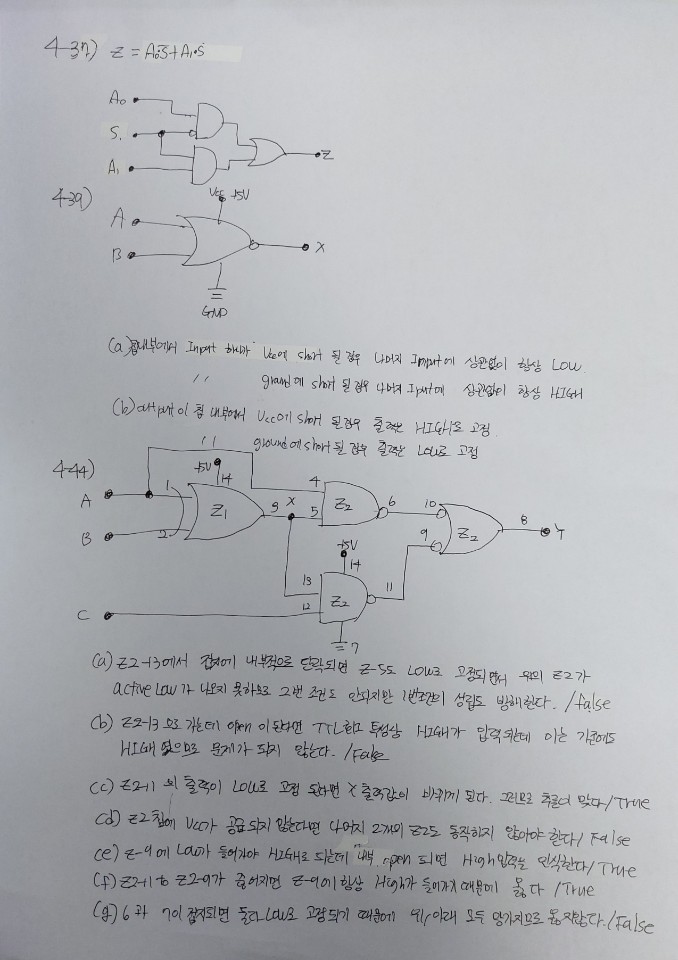 4-37) Z = A₀S̄+A₁S
A₀
S.
Z
A₁
4-39)
Vcc +5V
A
X
B
GND
(a) 칩내부에서 Input 하나가 Vcc에 short 될 경우 나머지 Input에 상관없이 항상 LOW.
〃 ground에 short 될 경우 나머지 Input에 상관없이 항상 HIGH
(b) output이 칩 내부에서 Vcc에 short 될 경우 출력은 HIGH로 고정.
〃 ground에 short 될 경우 출력은 LOW로 고정
4-44)
+5V
14
4
A
1
Z₁
3
X
5
Z₂
6
10
9
Z₂
8
Y
B
2
+5V
14
13
12
Z₂
11
C
7
(a) Z2-13에서 접지에 내부적으로 단락되면 Z-5도 LOW로 고정되면서 위의 Z2가
active Low가 나오지 못하므로 2번 조건도 안되지만 1번조건의 성립도 방해한다. /false
(b) Z2-13으로 가는데 open이 된다면 TTL회로 특성상 HIGH가 입력되는데 이는 기존에도
HIGH 였으므로 문제가 되지 않는다. /False
(c) Z2-11의 출력이 LOW로 고정 된다면 X출력값이 바뀌게 된다. 그러므로 추론이 맞다/True
(d) Z2칩에 Vcc가 공급되지 않는다면 나머지 2개의 Z2도 동작하지 않아야 한다/ False
(e) Z-9에 Low가 들어가야 HIGH로 되는데 내부 open 되면 High입력로 인식한다/ True
(f) Z2-11 to Z2-9가 끊어지면 Z-9에 항상 High가 들어가기 때문에 옳다 /True
(g) 6과 7이 접지되면 둘다 Low로 고정되기 때문에 위, 아래 모두 망가지므로 옳지않다. /False